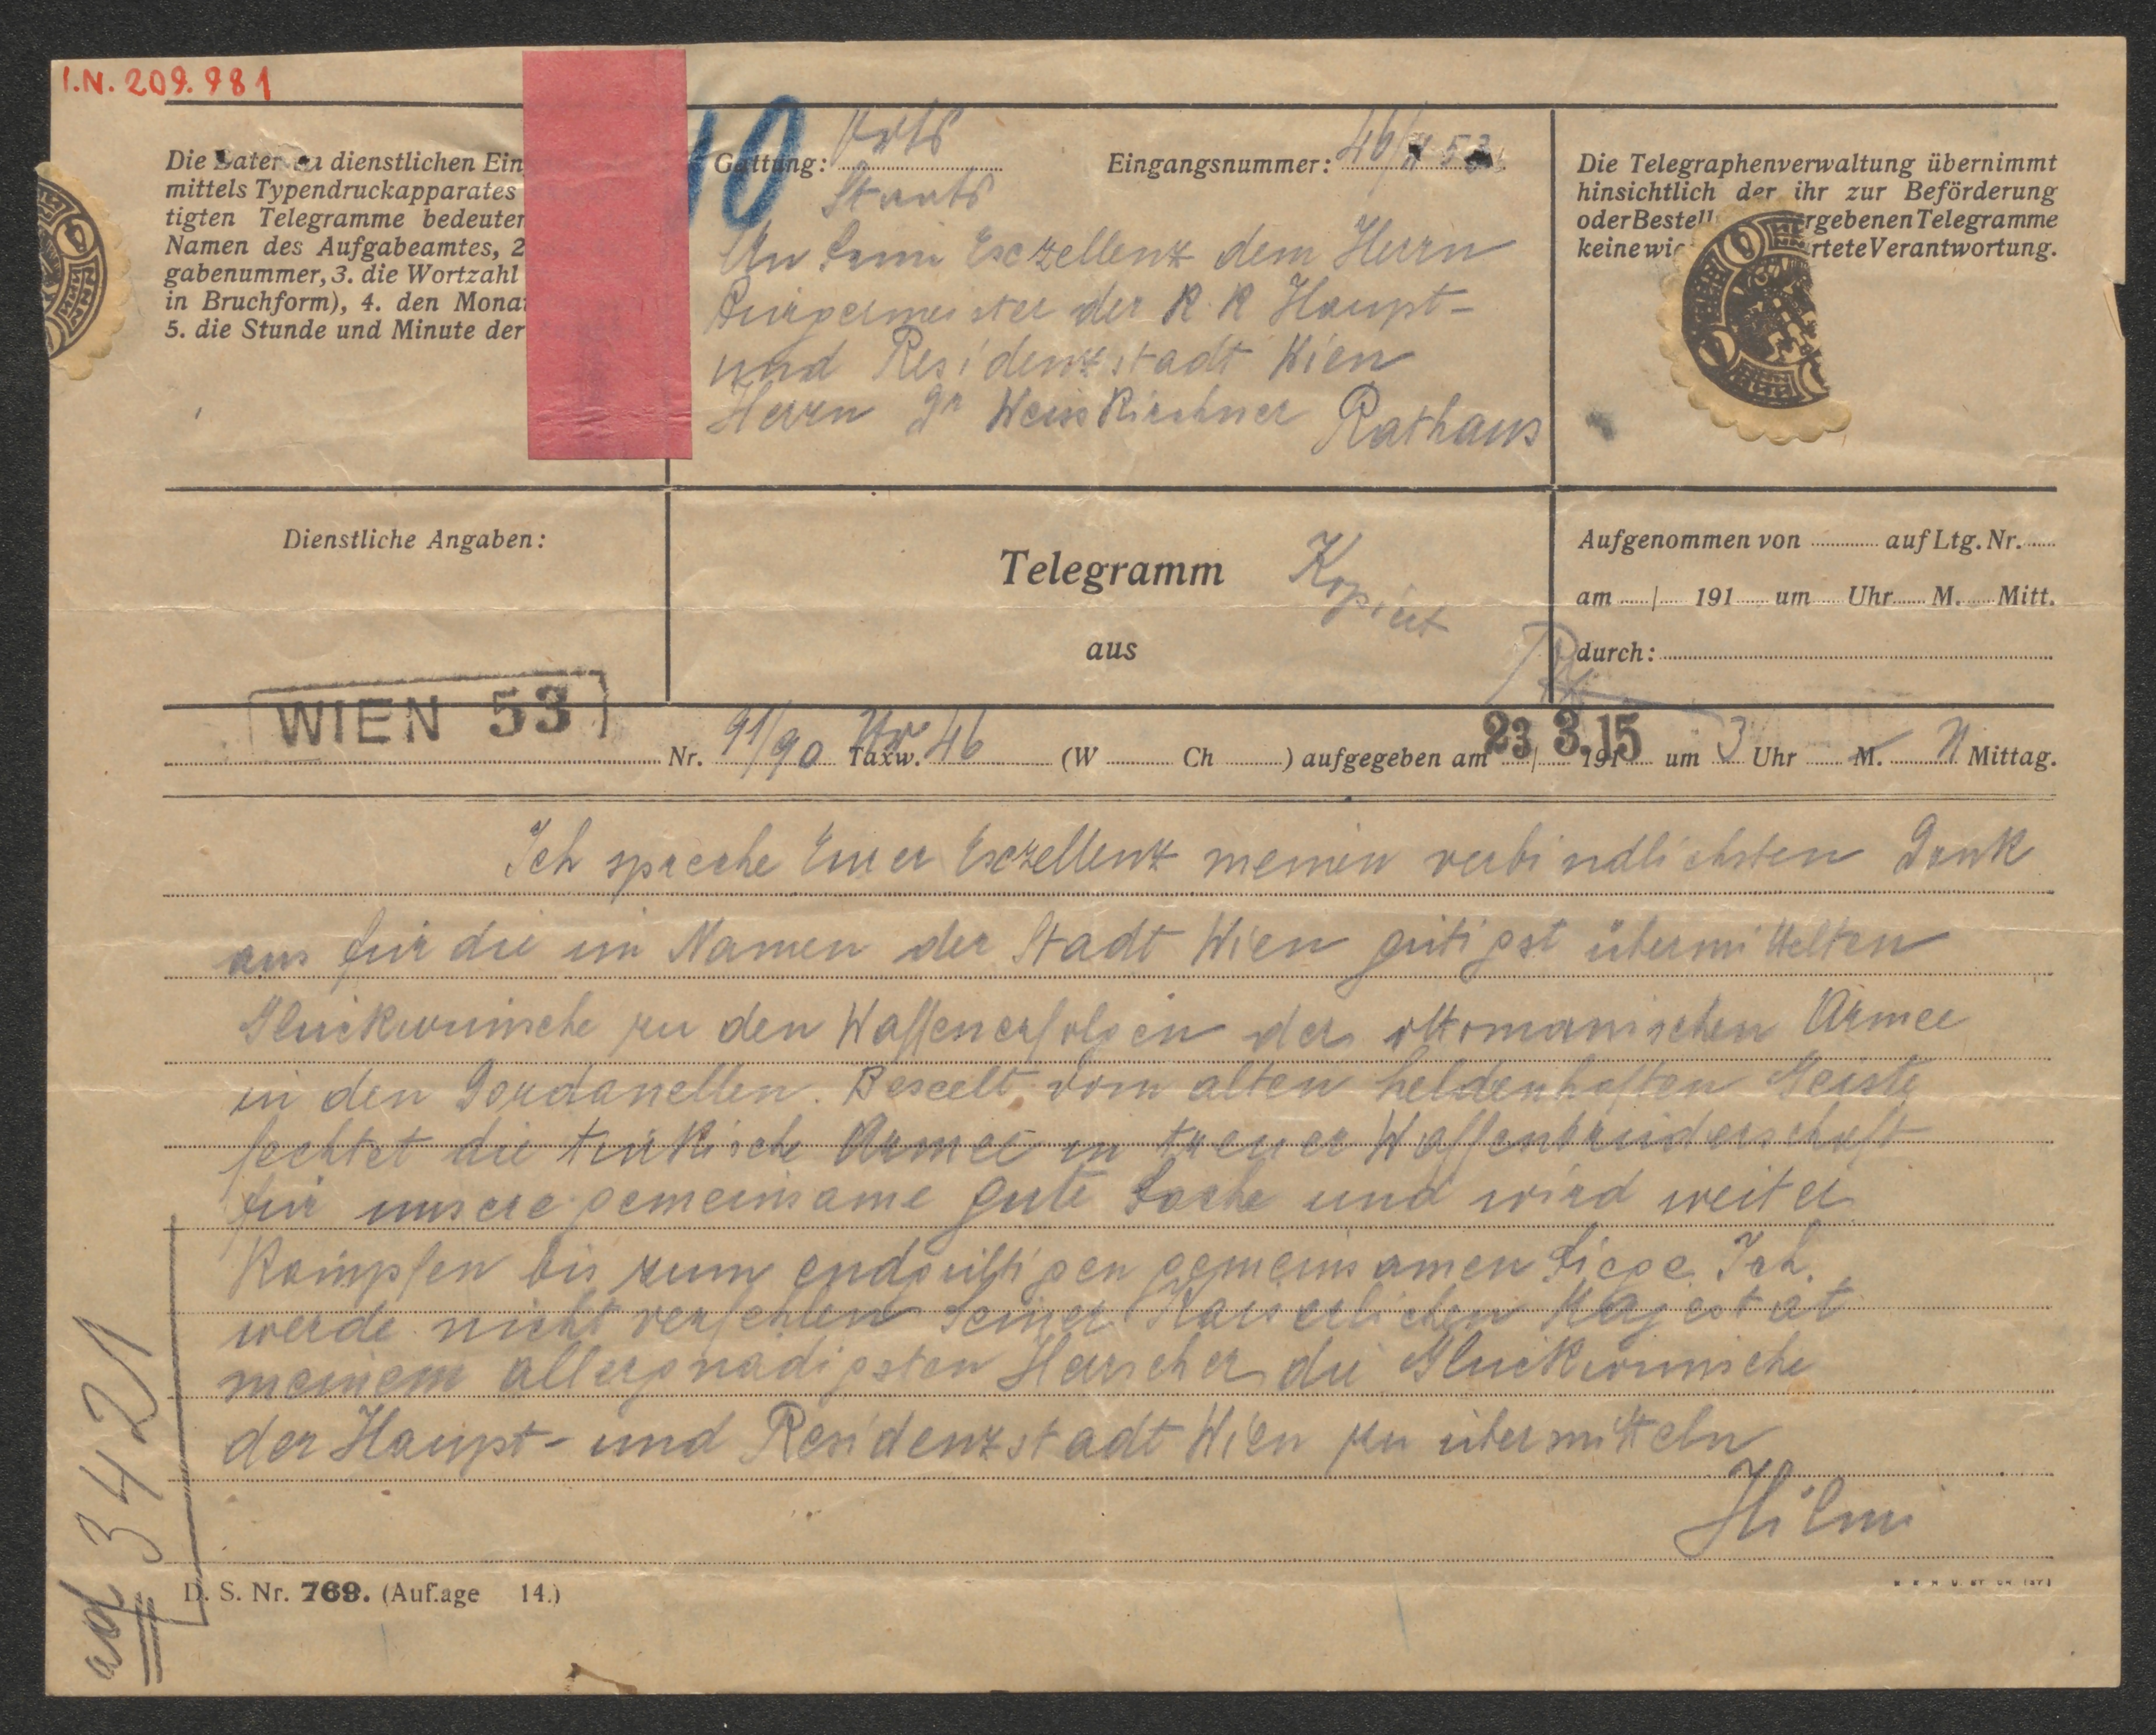 I.N. 209.981
Die Daten zu dienstlichen Ein
mittels Typendruckapparates
tigten Telegramme bedeuten
Namen des Aufgabeamtes, 2
gabenummer, 3. die Wortzahl
in Bruchform), 4. den Monat
5. die Stunde und Minute der
10
Gattung: Orts
Staats
Eingangsnummer: 46/
An Seine Exczellenz dem Herrn
Bürgermeister der K K Haupt-
und Residenzstadt Wien
Herrn Dr Weisskirchner Rathaus
Die Telegraphenverwaltung übernimmt
hinsichtlich der ihr zur Beförderung
oder Bestell rgebenen Telegramme
keine wie rtete Verantwortung.
Dienstliche Angaben:
Telegramm Kopiert
aus
Aufgenommen von auf Ltg. Nr.
am / 191 um Uhr M. Mitt.
durch:
WIEN 53
Nr. 91/90 Taxw. 46 (W Ch ) aufgegeben am 23/3 1915 um 3 Uhr M. N Mittag.
Ich spreche Eurer Exczellenz meinen verbindlichsten Dank
aus für die im Namen der Stadt Wien gütigst übermittelten
Glückwünsche zu den Waffenerfolgen der ottomanischen Armee
in den Dardanellen. Beseelt vom alten heldenhaften Geiste
fechtet die türkische Armee in treuer Waffenbrüderschaft
für unsere gemeinsame gute Sache und wird weiter
kämpfen bis zum endgültigen gemeinsamen Siege. Ich
werde nicht verfehlen Seiner Kaiserlichen Majestät
meinem allergnädigsten Herscher die Glückwünsche
der Haupt- und Residenzstadt Wien zu übermitteln
Hilmi
ad 3421
D. S. Nr. 769. (Auf.age 14.)